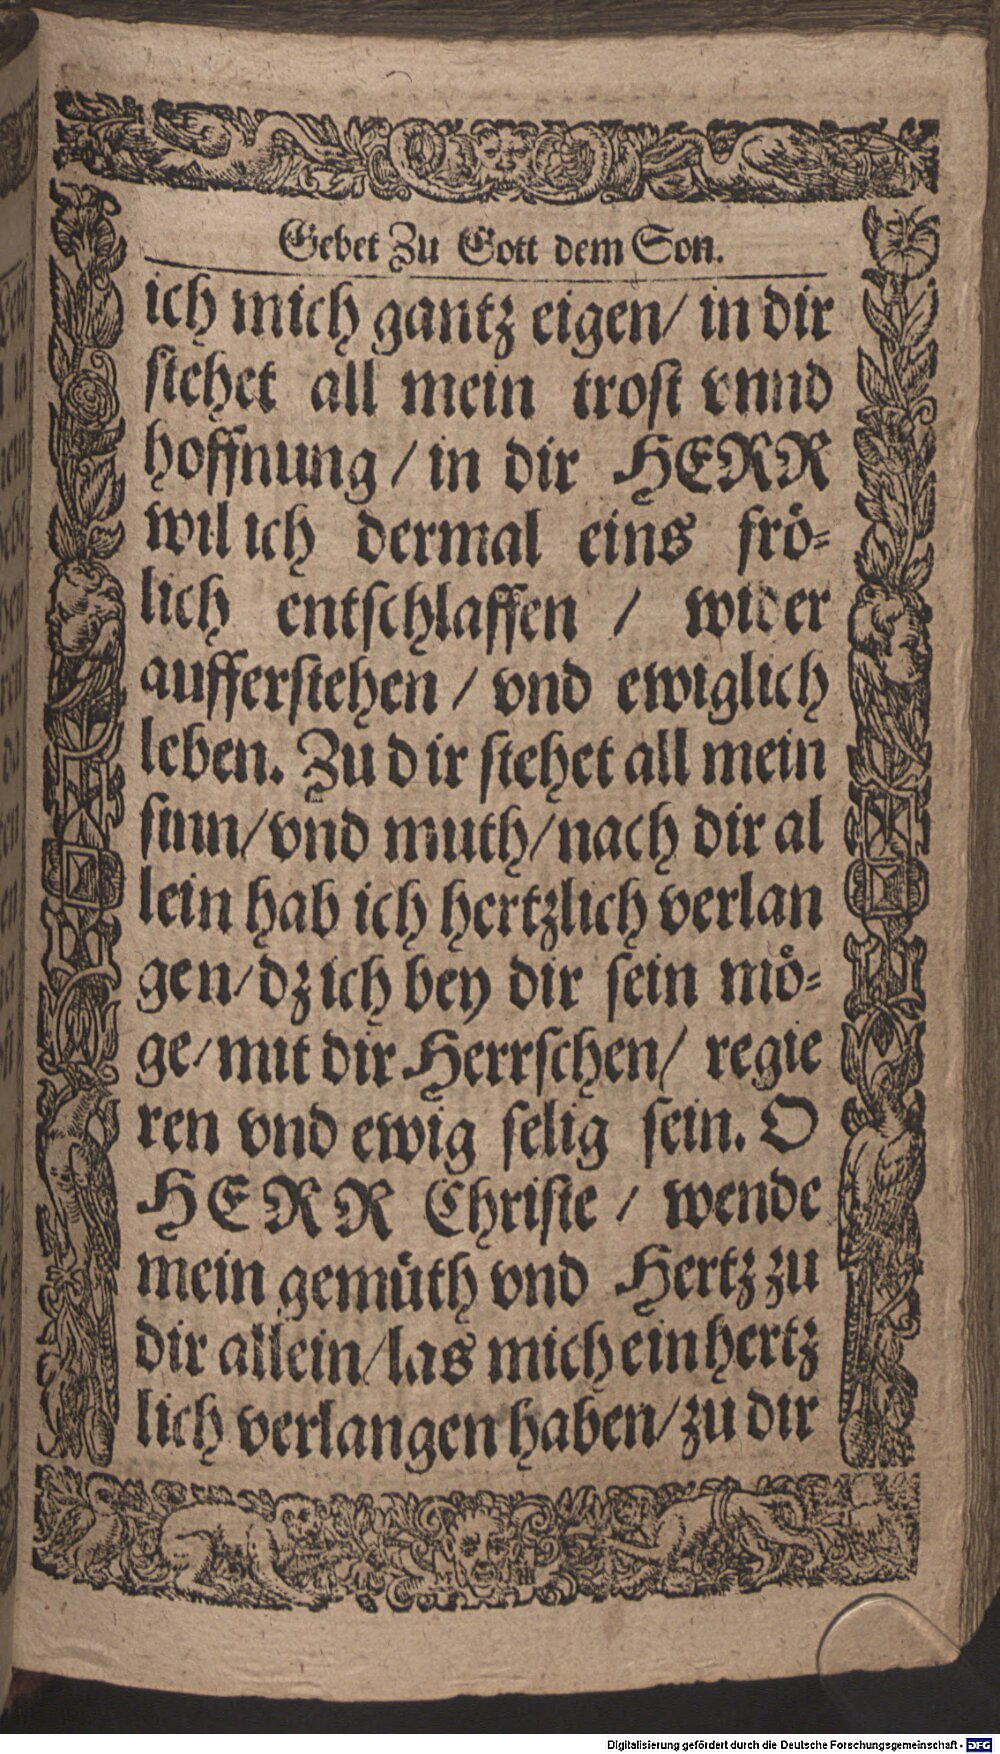 Gebet Zu Gott dem Son.
ich mich gantz eigen/ in dir
stehet all mein trost vnnd
hoffnung / in dir HERR
wil ich dermal eins frö-
lich entschlaffen / wider
aufferstehen / vnd ewiglich
leben. Zu dir stehet all mein
sinn/vnd muth/nach dir al
lein hab ich hertzlich verlan
gen/dz ich bey dir sein mö-
ge/mit dir Herrschen/ regie
ren vnd ewig selig sein. O
HERR Christe / wende
mein gemüth vnd Hertz zu
dir allein/las mich ein hertz
lich verlangen haben/zu dir
Digitalisierung gefördert durch die Deutsche Forschungsgemeinschaft - DFG